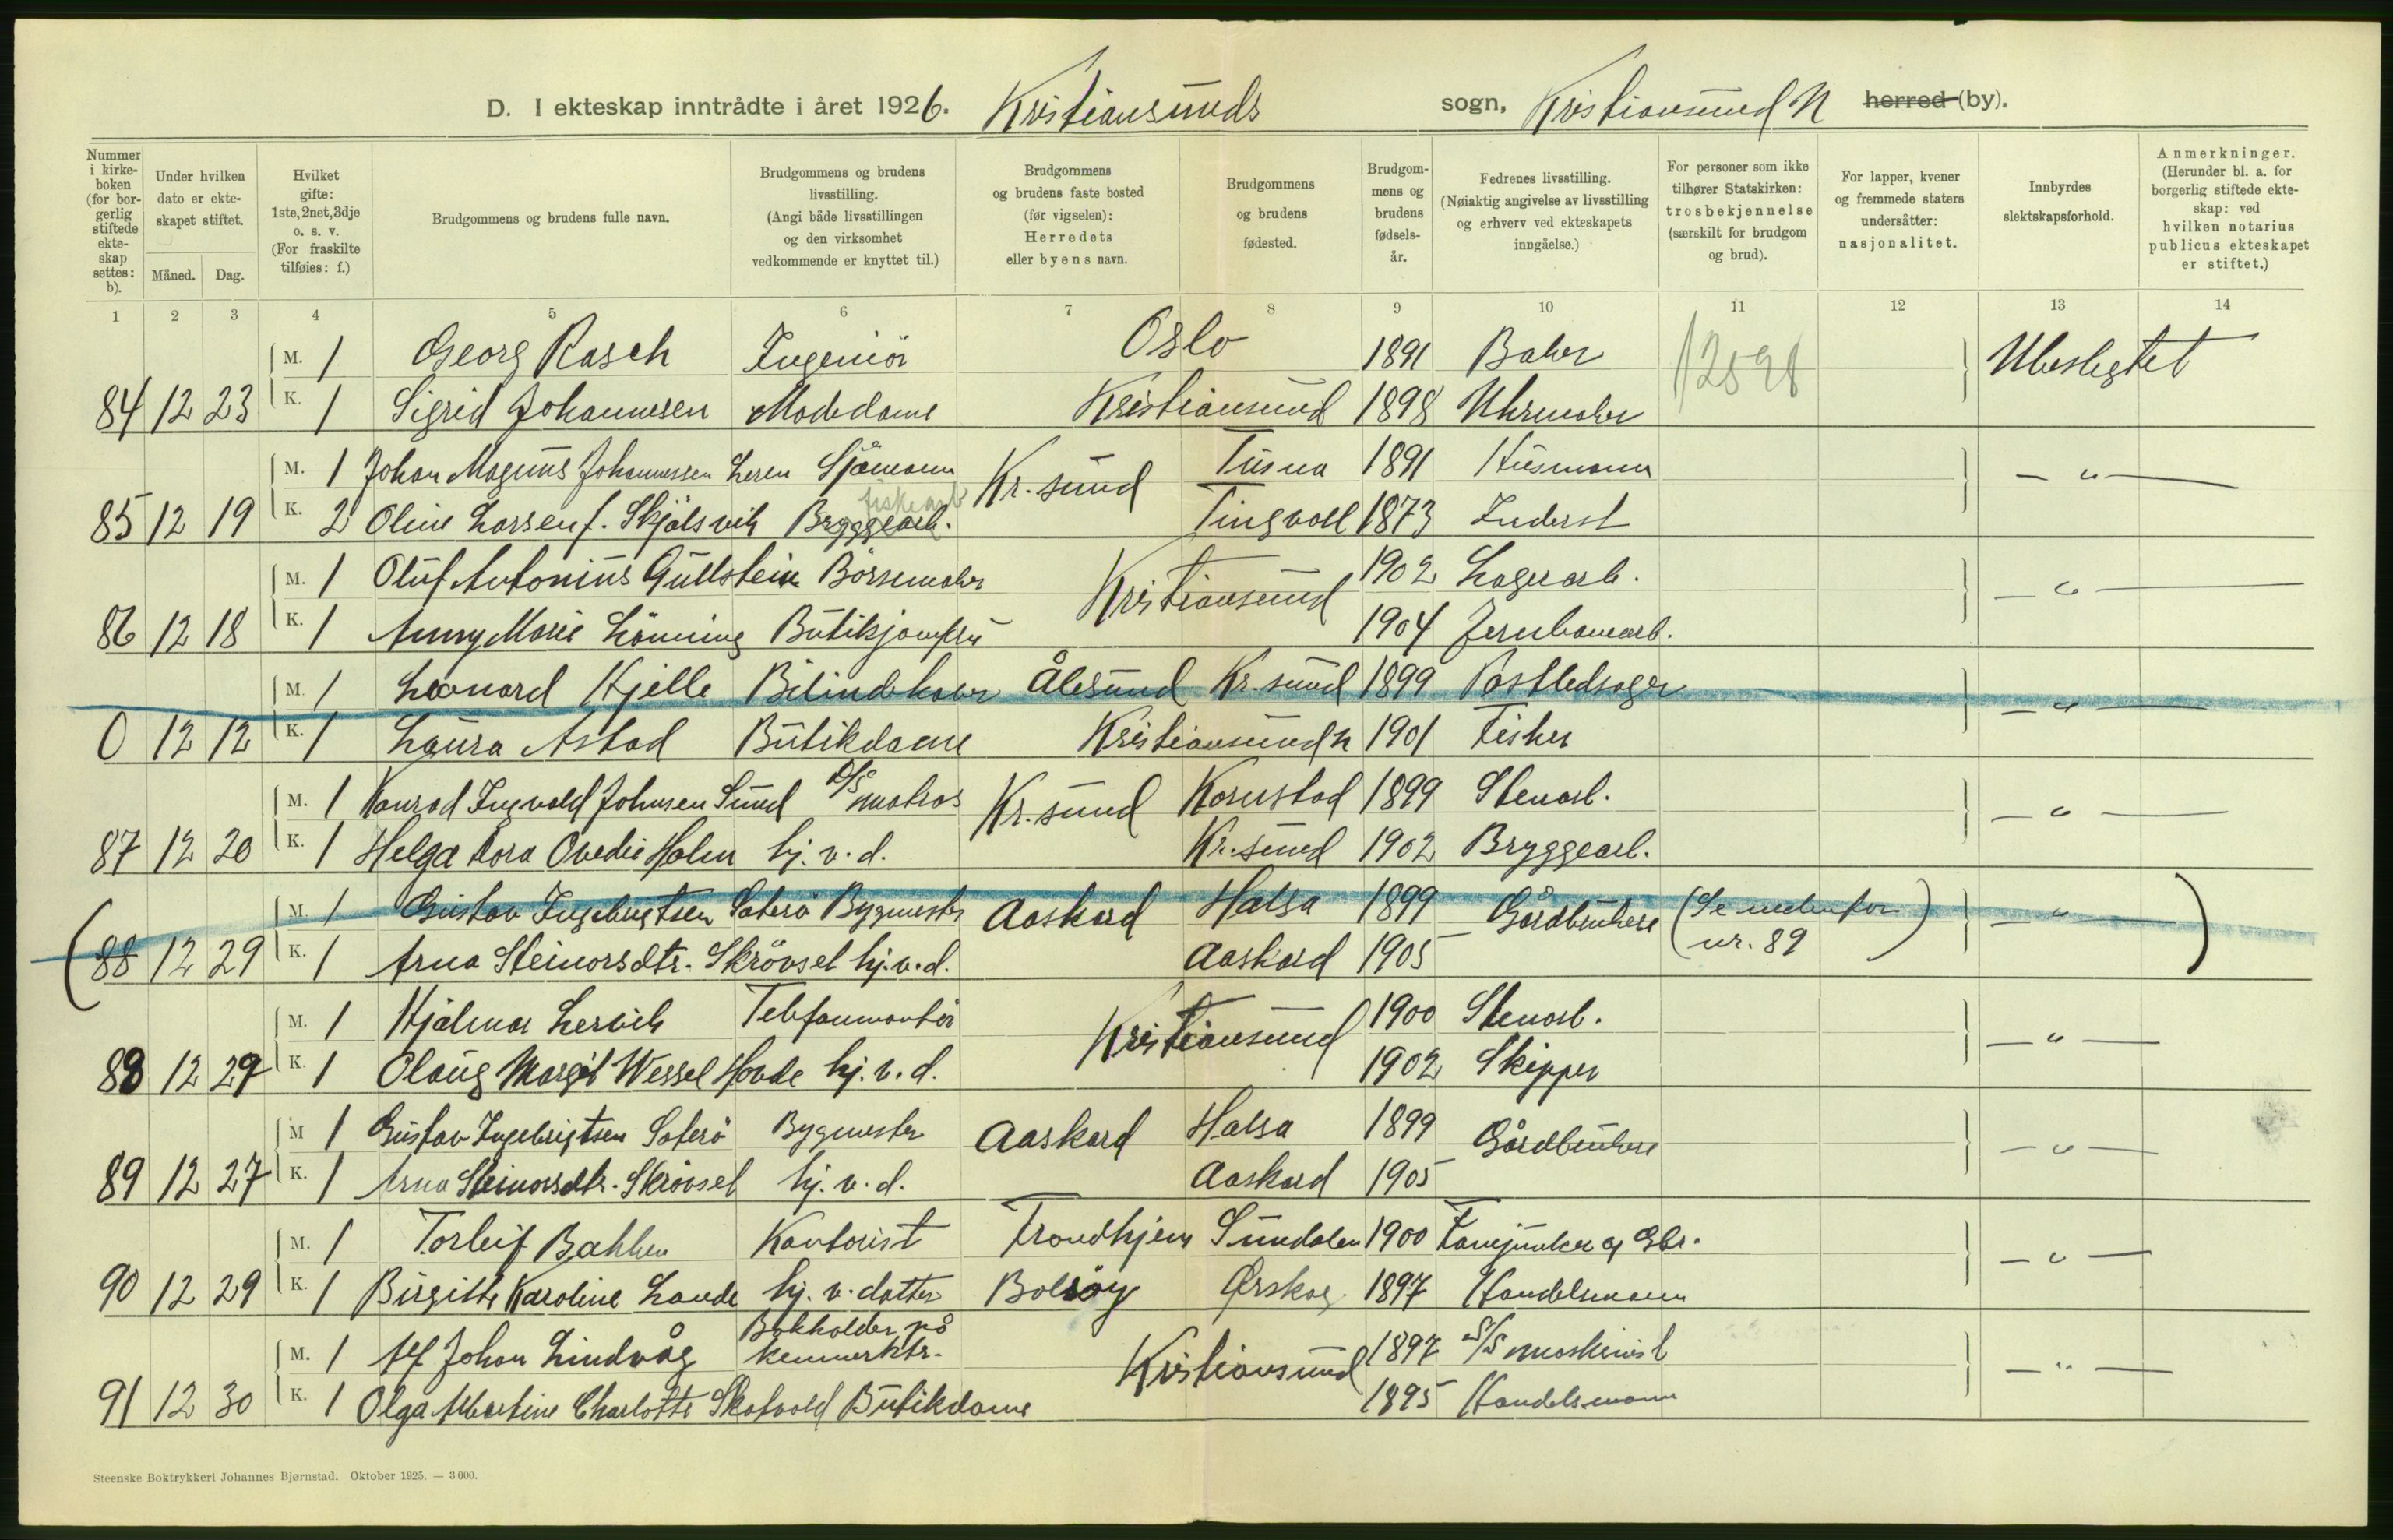 D. I ekteskap inntrådte i året 1926. Kristiansunds sogn, Kristiansund N herred (by).
Nummer i kirkeboken (for borgerlig stiftede ekteskap settes: b).
Under hvilken dato er ekteskapet stiftet.
Måned. Dag.
Hvilket gifte: 1ste, 2net, 3dje o. s. v. (For fraskilte tilføies: f.)
Brudgommens og brudens fulle navn.
Brudgommens og brudens livsstilling. (Angi både livsstillingen og den virksomhet vedkommende er knyttet til.)
Brudgommens og brudens faste bosted (før vigselen): Herredets eller byens navn.
Brudgommens og brudens fødested.
Brudgommens og brudens fødselsår.
Fedrenes livsstilling. (Nøiaktig angivelse av livsstilling og erhverv ved ekteskapets inngåelse.)
For personer som ikke tilhører Statskirken: trosbekjennelse (særskilt for brudgom og brud).
For lapper, kvener og fremmede staters undersåtter: nasjonalitet.
Innbyrdes slektskapsforhold.
Anmerkninger. (Herunder bl. a. for borgerlig stiftede ekteskap: ved hvilken notarius publicus ekteskapet er stiftet.)
1 2 3 4 5 6 7 8 9 10 11 12 13 14
M. 1 Georg Rasch Ingeniør Oslo 1891 Baker 12598 Ubeslegtet
84 12 23 K. 1 Sigrid Johannesen Modedame Kristiansund 1898 Uhrmaker
M. 1 Johan Magnus Johannessen Leren Sjömann Kr.sund Tusna 1891 Husmann — " —
85 12 19 K. 2 Oline Larsen f. Skjölsvik Bryggearb. fiskearb Tingvoll 1873 Inderst
M. 1 Oluf Antonius Gullstein Börsemaker Kristiansund 1902 Lagerarb. — " —
86 12 18 K. 1 Anny Marie Lönning Butikjomfru 1904 Jernbanearb.
M. 1 Leonard Kjelle Ålesund Kr.sund 1899 Postledsager — " —
0 12 12 K. 1 Laura Astad Butikdame Kristiansund n 1901 Fisker
M. 1 Konrad Ingvald Johnsen Sund D/S matros Kr.sund Kornstad 1899 Stenarb. — " —
87 12 20 K. 1 Helga Kora Ovedie Holm hj. v. d. Kr.sund 1902 Bryggearb.
(M. 1 Gustav Ingebrigtsen Saterö Bygmester Aaskard Halsa 1899 Gårdbrukere (Se nedenfor — " —
88 12 29 K. 1 Arna Steinorsdtr. Skrövset hj. v. d. Aaskard 1905 nr. 89)
M. 1 Hjalmar Lervik Telefonmontör Kristiansund 1900 Stenarb. — " —
88 12 27 K. 1 Olaug Margit Wessel Hovde hj. v. d. 1902 Skipper
M 1 Gustav Ingebrigtsen Saterö Bygmester Aaskard Halsa 1899 Gårdbrukere — " —
89 12 27 K. 1 Arna Steinorsdtr. Skrövset hj. v. d. Aaskard 1905
M. 1 Torleif Bakken Kontorist Trondhjem Sundalen 1900 Fanejunker og Gbr. — " —
90 12 29 K. 1 Birgitte Karoline Lande hj. v. datter Bolsöy Ørskog 1897 Handelsmann
M. 1 Alf Johan Lindvåg Bokholder på kemnerktr. Kristiansund 1897 D/S maskinist — " —
91 12 30 K. 1 Olga Albertine Charlotte Skotvold Butikdame 1895 Handelsmann
Steenske Boktrykkeri Johannes Bjørnstad. Oktober 1925. — 3 000.